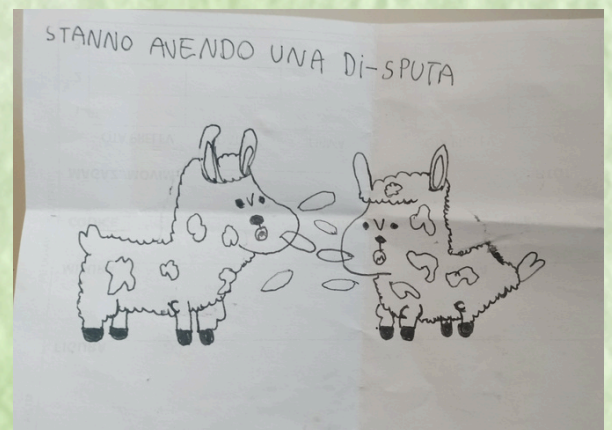 STANNO AVENDO UNA Di-SPUTA